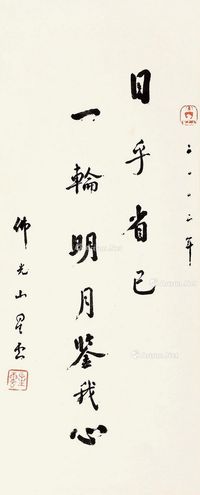 二〇〇二年
目乎省己
一輪明月鑒我心
佛光山星云